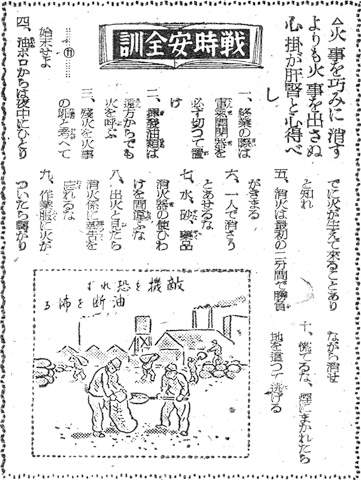 戦時安全訓
△火事を巧みに消す
よりも火事を出さぬ
心掛が肝腎と心得べ
し
一、終業の際は
電氣開閉器を
必ず切つて置
け
二、揮發油類は
遠方からでも
火を呼ぶ
三、殘火を火事
の卵と考へて
始末せよ
四、油ボロからは夜中にひとり
でに火が生えて來ることあり
と知れ
五、消火は最初の二分間で勝負
がきまる
六、一人で消さう
とあせるな
七、水、砂、藥品
消火器の使ひわ
けを間違ふな
八、出火と見たら
消火係に急告を
忘れるな
九、作業服に火が
ついたら轉がり
ながら消せ
十、慌てるな、煙にまかれたら
地を這つて逃げろ
敵機を恐れず
油断を怖る